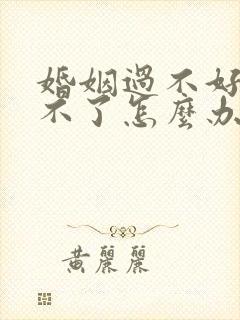 婚姻過不好
不了怎麼办
黄麗麗